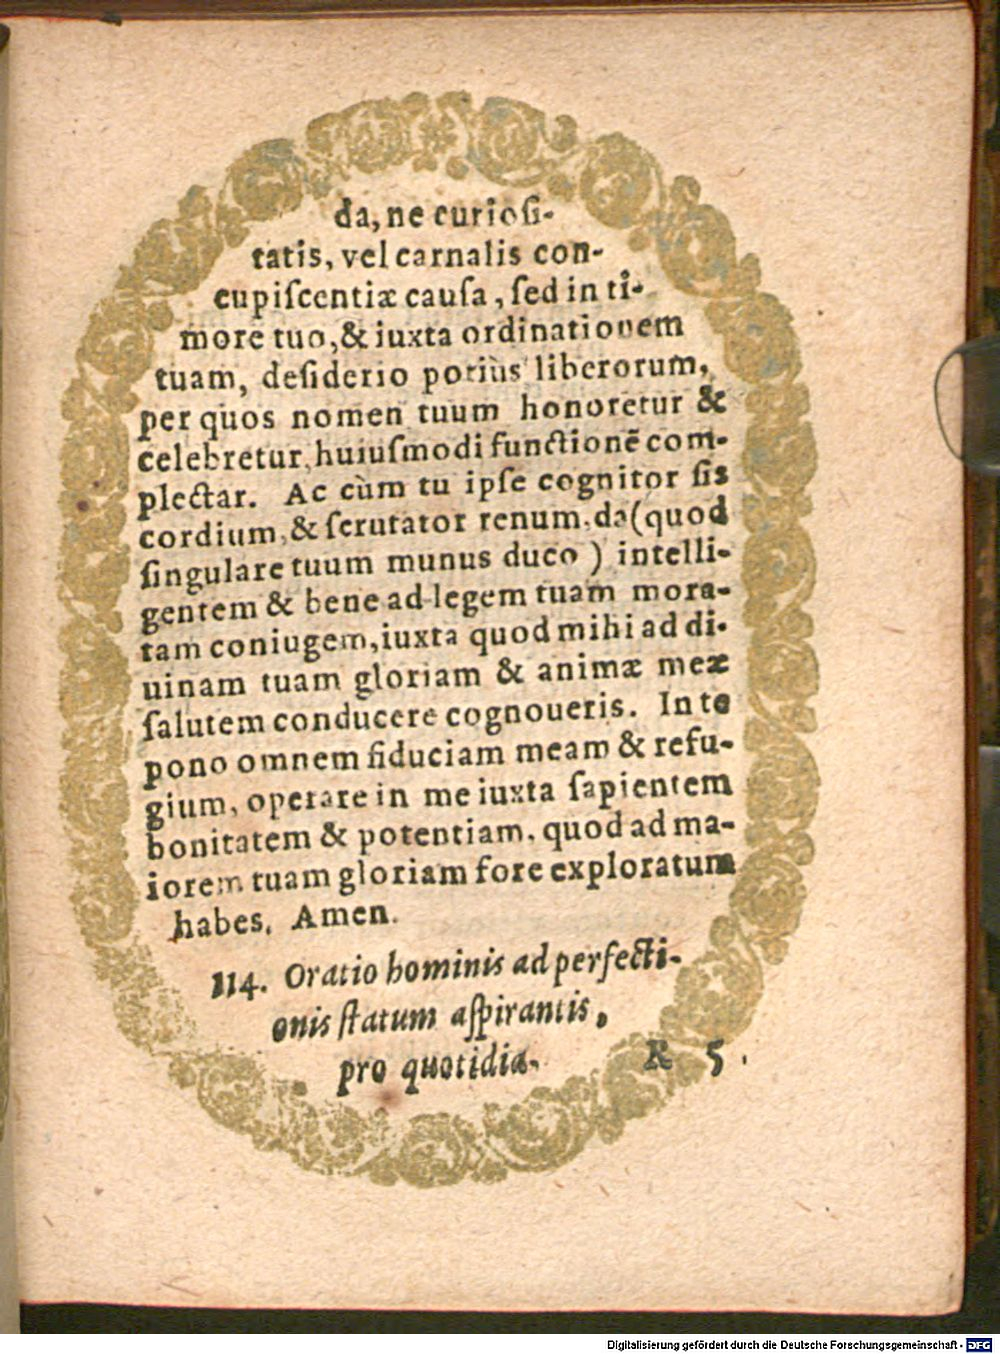 da, ne curioſi-
tatis, vel carnalis con-
cupiſcentiæ cauſa, ſed in ti-
more tuo, & iuxta ordinationem
tuam, deſiderio potiùs liberorum,
per quos nomen tuum honoretur &
celebretur, huiuſmodi functionē com-
plectar. Ac cùm tu ipſe cognitor ſis
cordium, & ſcrutator renum, da (quod
ſingulare tuum munus duco) intelli-
gentem & bene ad legem tuam mora-
tam coniugem, iuxta quod mihi ad di-
uinam tuam gloriam & animæ meæ
ſalutem conducere cognoueris. In te
pono omnem fiduciam meam & refu-
gium, operare in me iuxta ſapientem
bonitatem & potentiam, quod ad ma-
iorem tuam gloriam fore exploratum
habes, Amen.
114. Oratio hominis ad perfecti-
onis ſtatum aſpirantis,
pro quotidia-
R 5.
Digitalisierung gefördert durch die Deutsche Forschungsgemeinschaft - DFG